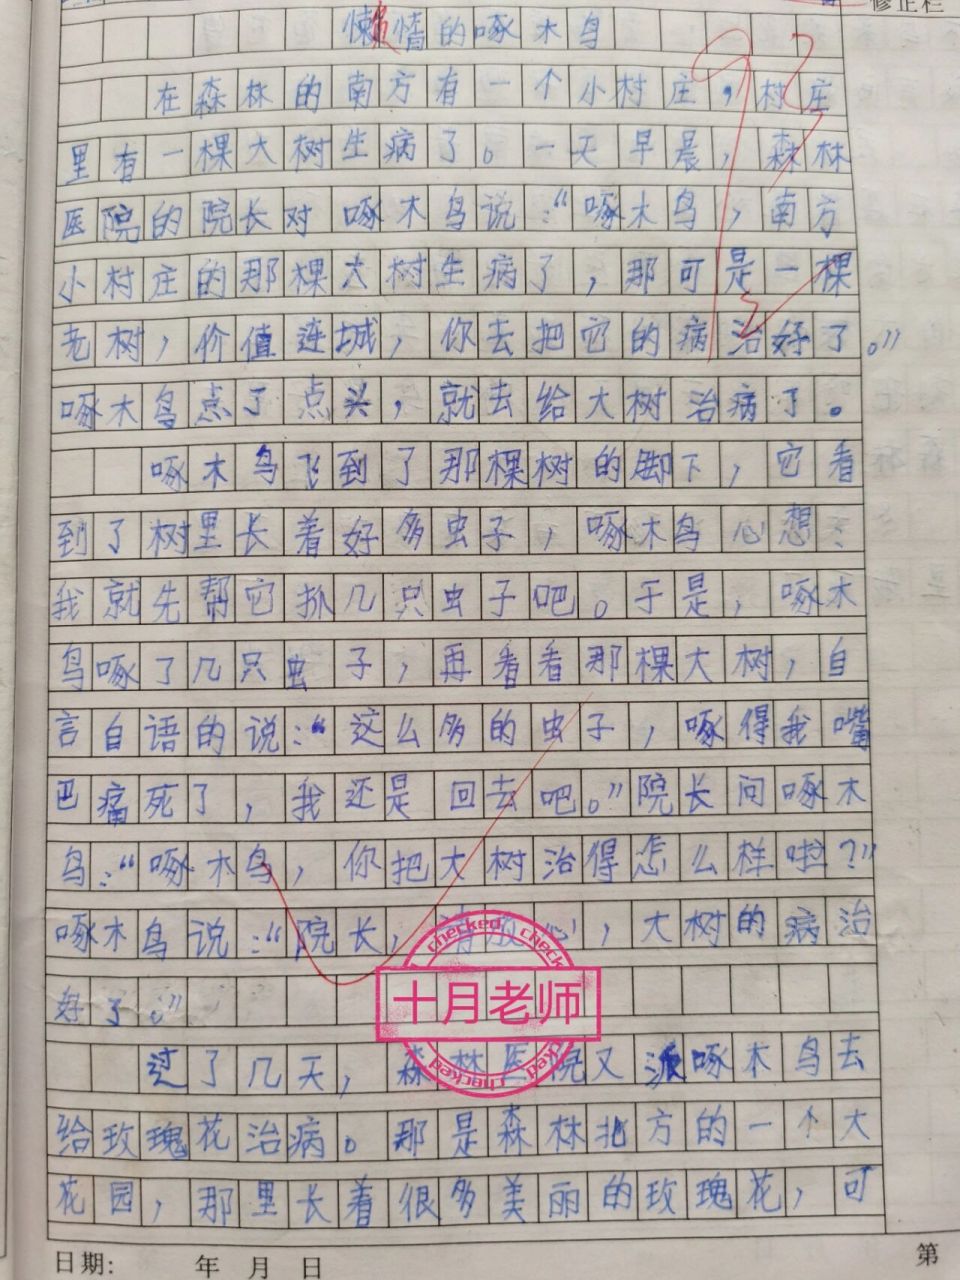 修正栏
懒惰的啄木鸟
在森林的南方有一个小村庄，村庄
里有一棵大树生病了。一天早晨，森林
医院的院长对啄木鸟说：“啄木鸟，南方
小村庄的那棵大树生病了，那可是一棵
老树，价值连城，你去把它的病治好了。”
啄木鸟点了点头，就去给大树治病了。
啄木鸟飞到了那棵树的脚下，它看
到了树里长着好多虫子，啄木鸟心想：
我就先帮它抓几只虫子吧。于是，啄木
鸟啄了几只虫子，再看看那棵大树，自
言自语的说：“这么多的虫子，啄得我嘴
巴痛死了，我还是回去吧。”院长问啄木
鸟：“啄木鸟，你把大树治得怎么样啦？”
啄木鸟说：“院长，请放心，大树的病治
好了。”
checked
十月老师
过了几天，森林医院又派啄木鸟去
给玫瑰花治病。那是森林北方的一个大
花园，那里长着很多美丽的玫瑰花，可
日期： 年 月 日 第